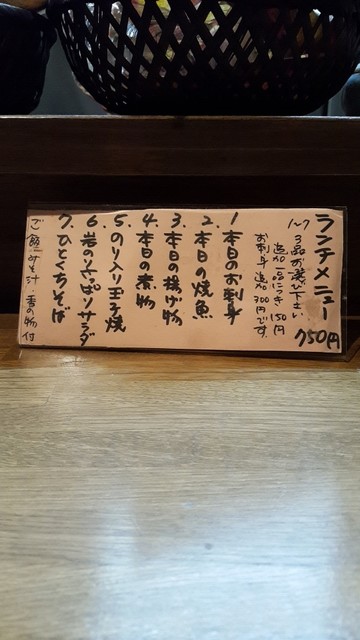 ランチメニュー 750円
1〜7 3品お選び下さい
追加一品につき150円
お刺身追加300円です。
1 本日のお刺身
2. 本日の焼魚
3. 本日の揚げ物
4. 本日の煮物
5. のり入り玉子焼
6. 岩のりさっぱりサラダ
7. ひとくちそば
ご飯 みそ汁 香の物付